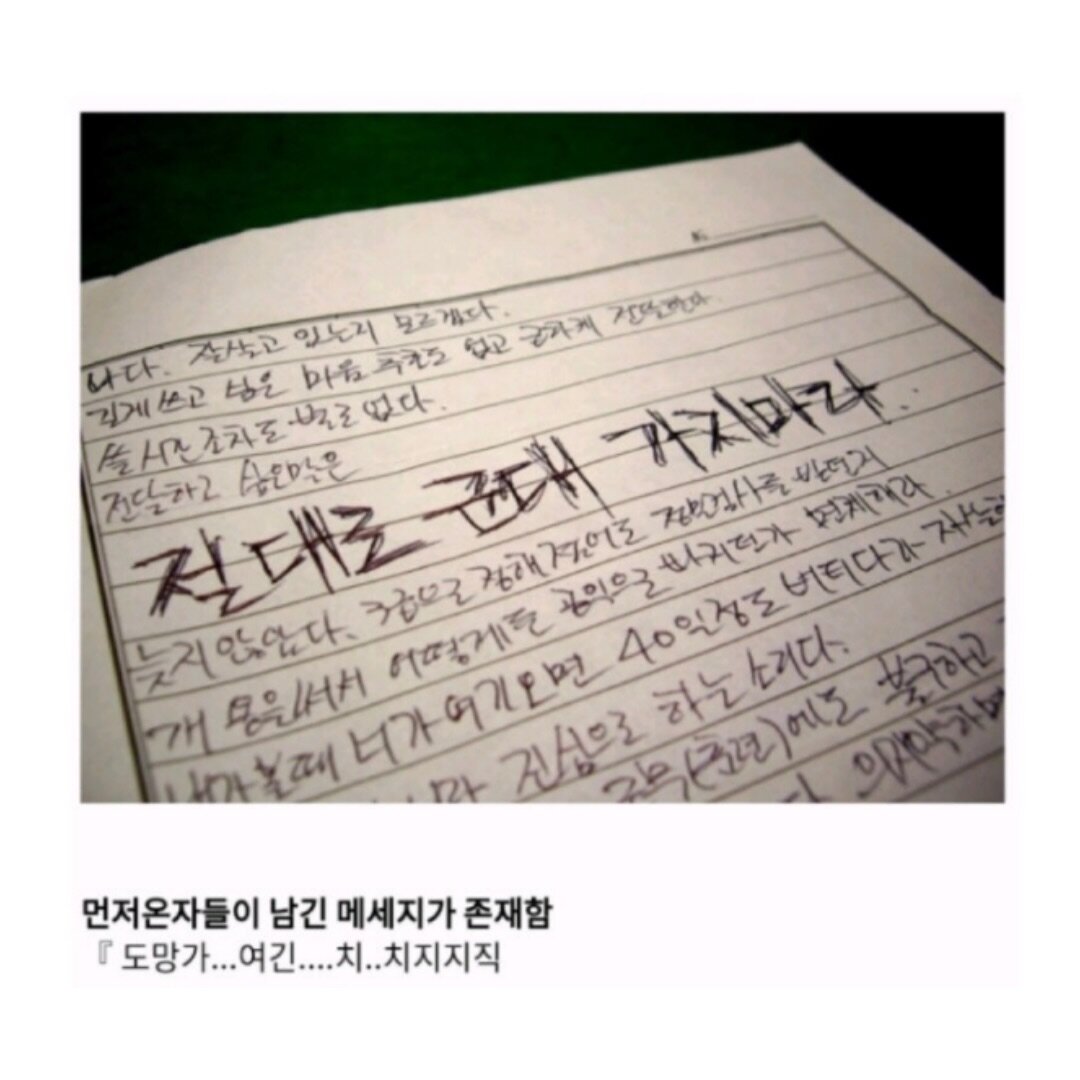 나다. 잘살고 있는지 모르겠다.
길게 쓰고 싶은 마음 추호도 없고 간단하게 전달한다
쓸 시간조차도 별로 없다.
전달하고 싶은말은
절대로 군대 가지마라..
늦지 않았다. 3급으로 정해졌어도 정밀검사를 받던지
개 용을써서 어떻게든 공익으로 빠지던가 면제해라
니가 여기오면 40일정도 버티다가
진심으로 하는 소리다.
(훈련)에도 불구하고
의지약하면
먼저온자들이 남긴 메세지가 존재함
『 도망가...여긴....치..치지지직